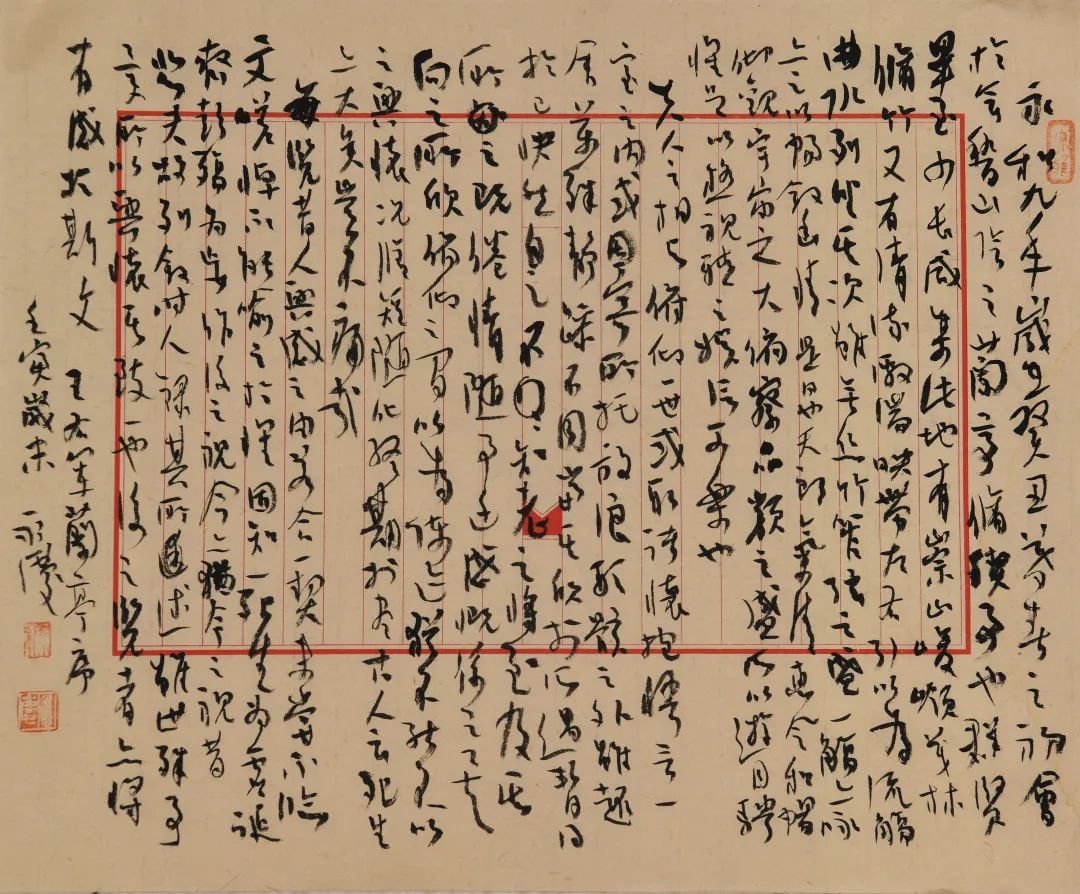 永和九年歲在癸丑暮春之初會
於會稽山陰之蘭亭脩禊事也群賢
畢至少長咸集此地有崇山峻嶺茂林
脩竹又有清流激湍映帶左右引以為流觴
曲水列坐其次雖無絲竹管弦之盛一觴一詠
亦足以暢敘幽情是日也天朗氣清惠風和暢
仰觀宇宙之大俯察品類之盛所以遊目騁
懷足以極視聽之娛信可樂也
夫人之相與俯仰一世或取諸懷抱悟言一
室之內或因寄所托放浪形骸之外雖趣
舍萬殊靜躁不同當其欣於所遇暫得
於己快然自足不知老之將至及其
所之既倦情隨事遷感慨係之矣
向之所欣俛仰之間以為陳迹猶不能不以
之興懷況脩短隨化終期於盡古人云死生
亦大矣豈不痛哉
每覽昔人興感之由若合一契未嘗不臨
文嗟悼不能喻之於懷固知一死生為虛誕
齊彭殤為妄作後之視今亦猶今之視昔
悲夫故列敘時人錄其所述雖世殊事
異所以興懷其致一也後之覽者亦將
有感於斯文 王右軍蘭亭序
壬寅歲末